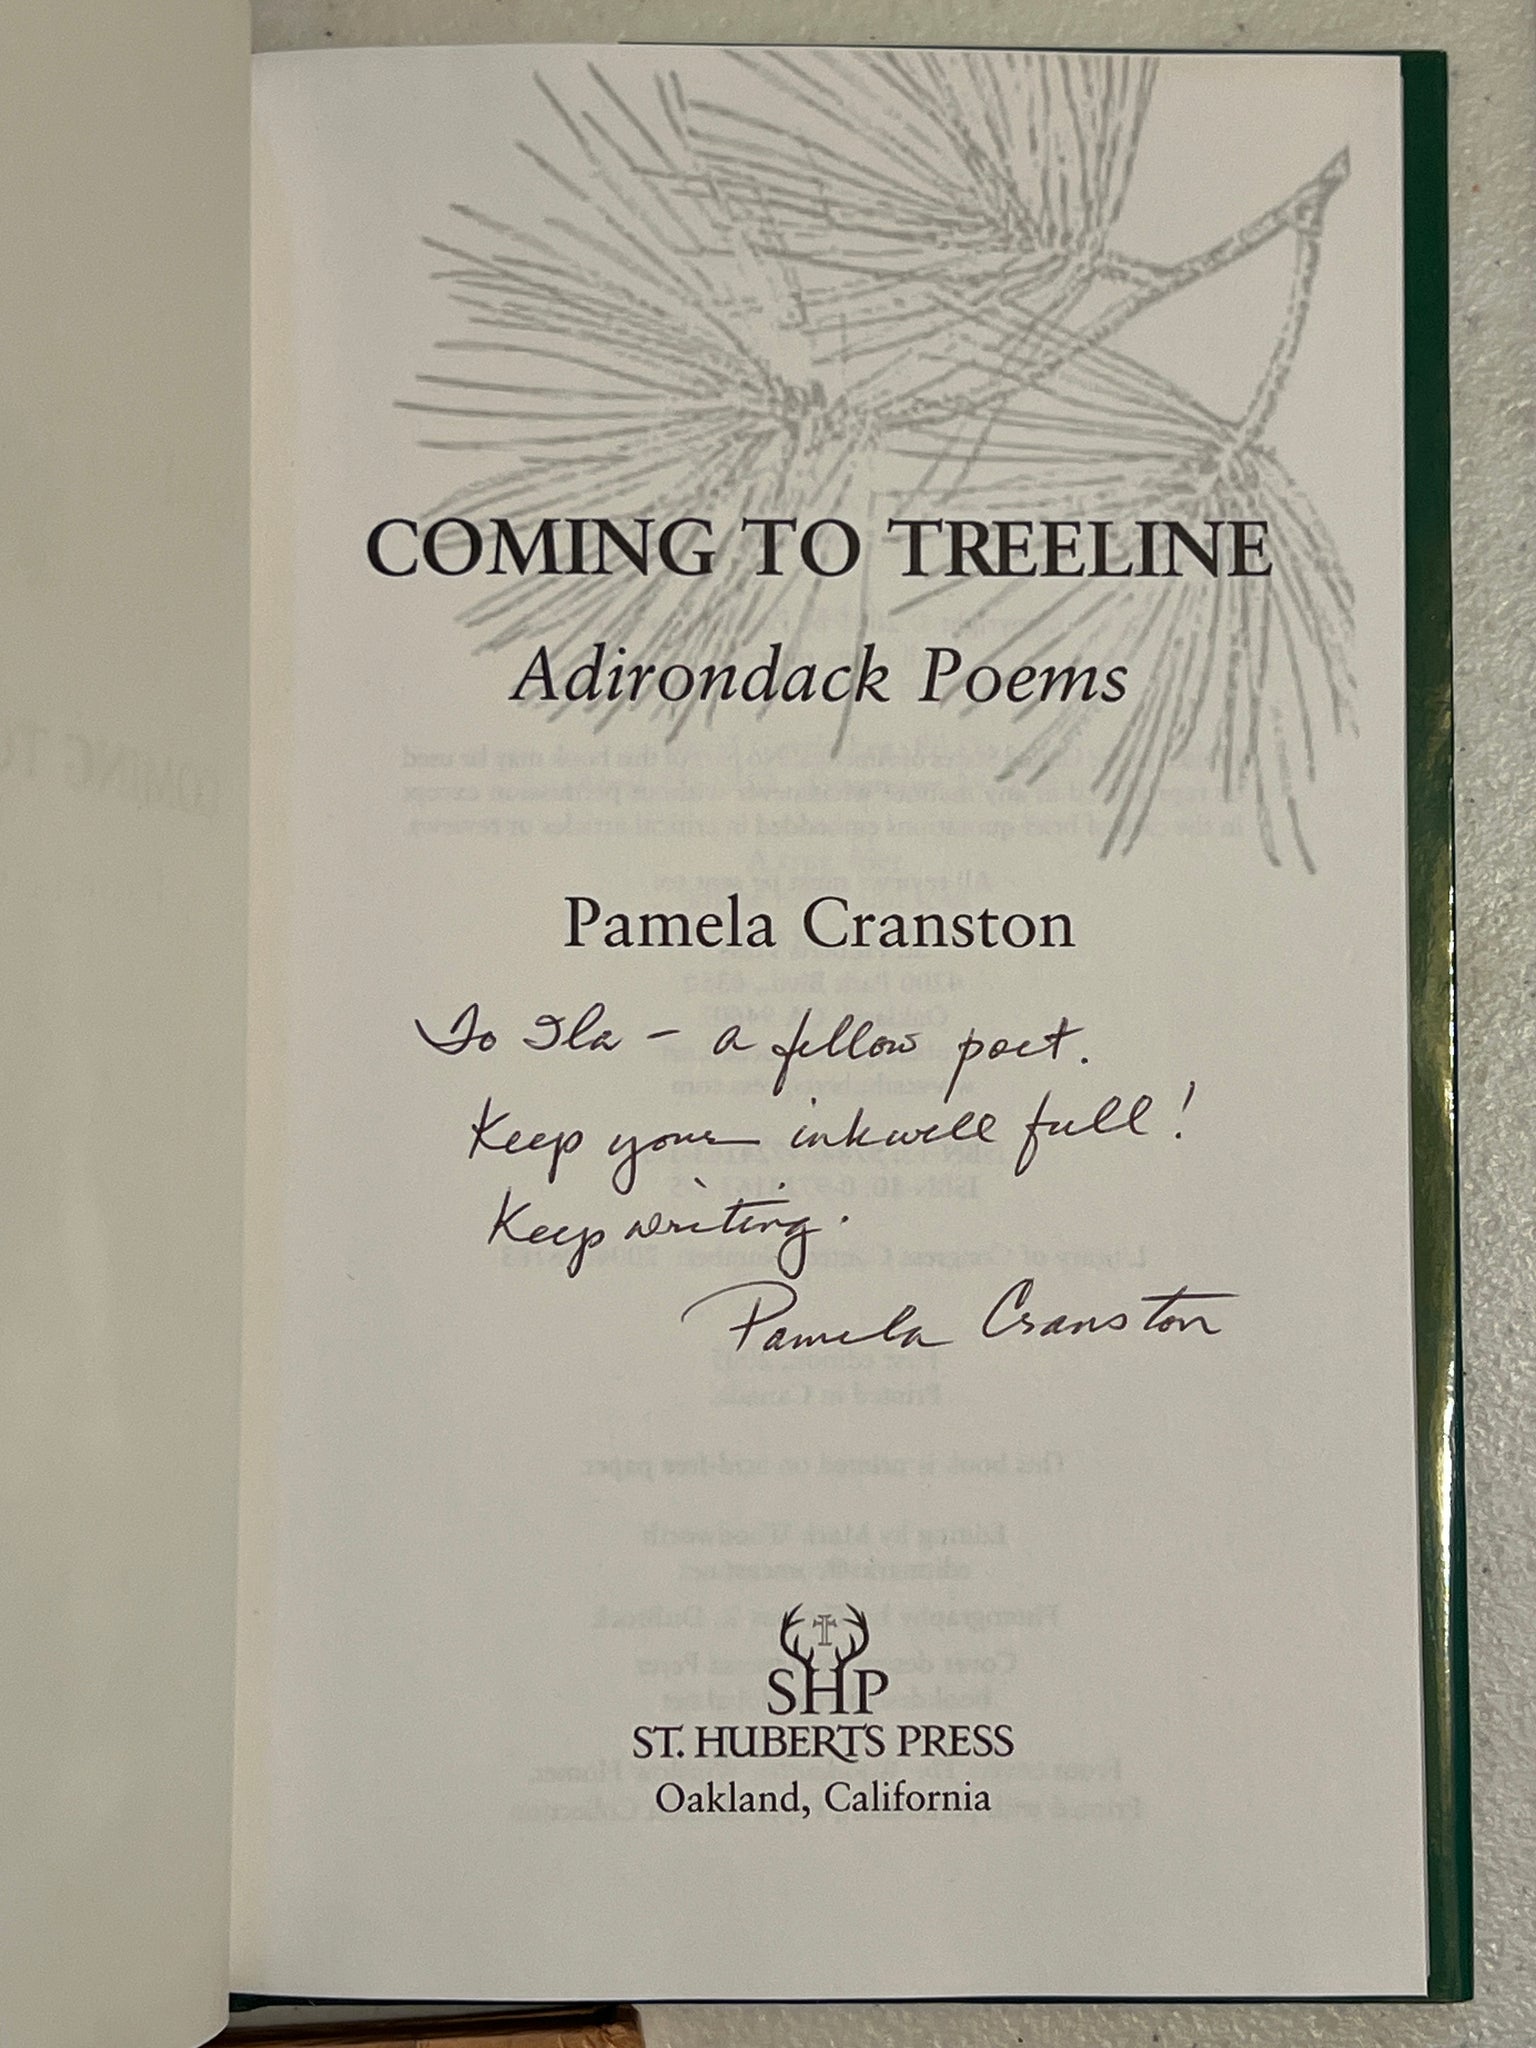 COMING TO TREELINE
Adirondack Poems
Pamela Cranston
To Ila – a fellow poet.
Keep your inkwell full!
Keep writing.
Pamela Cranston
SHP
ST. HUBERTS PRESS
Oakland, California